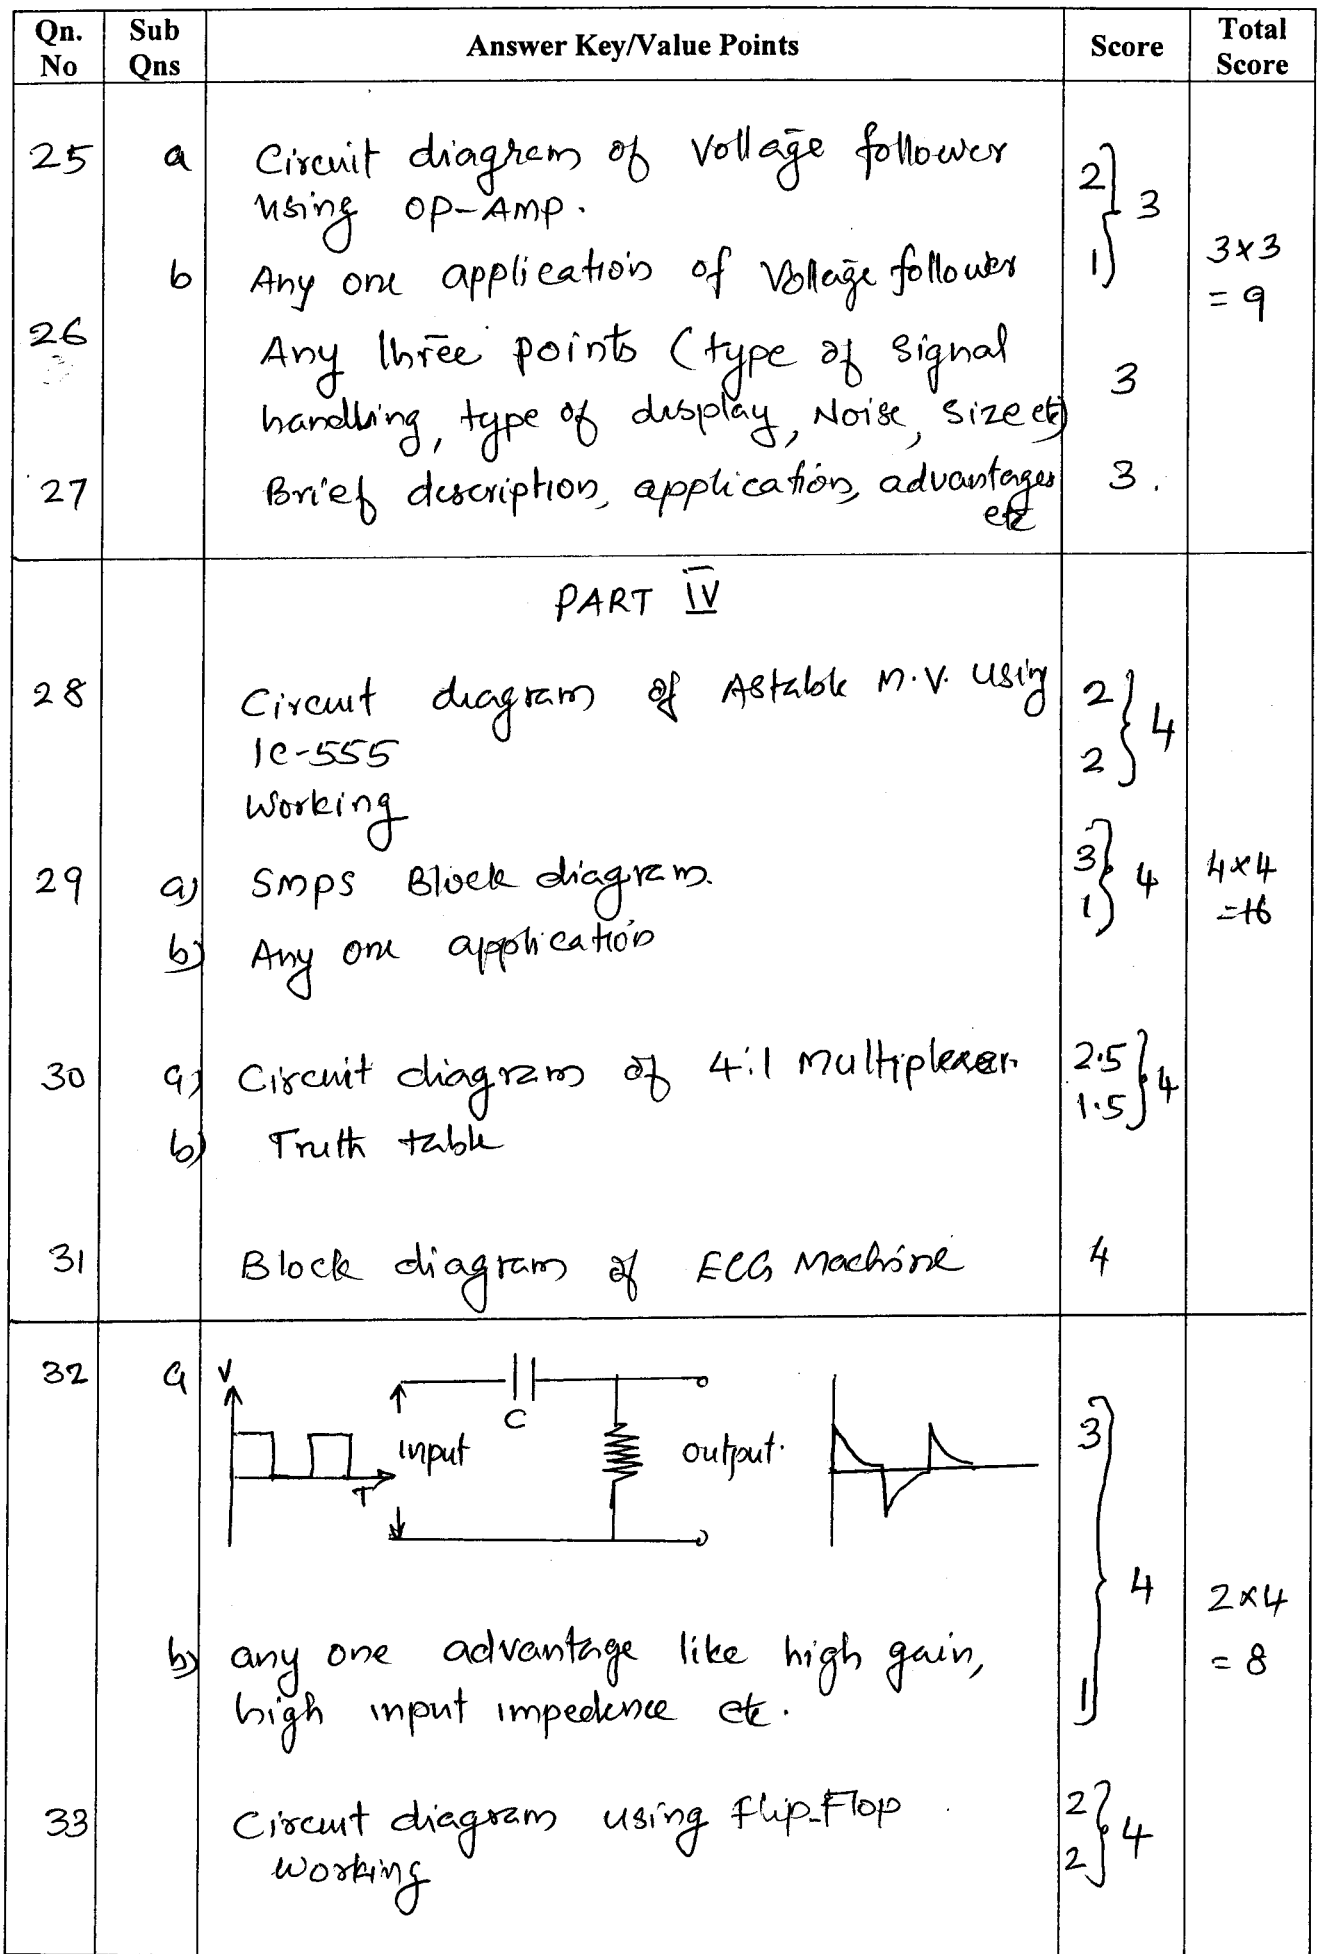 Qn. No Sub Qns Answer Key/Value Points Score Total Score
25 a Circuit diagram of Voltage follower 2
using OP-AMP. 3
b Any one application of Voltage follower 1 3x3
= 9
26 Any three points (type of signal
handling, type of display, Noise, Size etc) 3
27 Brief description, application, advantages 3.
etc
PART IV
28 Circuit diagram of Astable M.V. using 2
IC-555 2 4
Working
29 a) SMPS Block diagram. 3 4 4x4
=16
b) Any one application 1
30 a) Circuit diagram of 4:1 Multiplexer. 2.5 4
b) Truth table 1.5
31 Block diagram of ECG Machine 4
32 a V
C
input output. 3
T
4 2x4
b) any one advantage like high gain, = 8
high input impedence etc. 1
33 Circuit diagram using Flip-Flop 2 4
Working 2